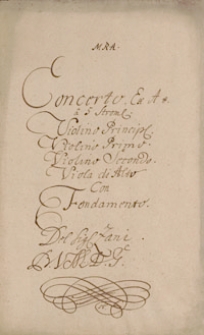 M.R.A.
Concerto. Ex A #.
à 5 Strom.
Violino Principl.
Violino Primo.
Violino Secondo.
Viola di Alto
Con
Fondamento.
Del Sigl. Zani.